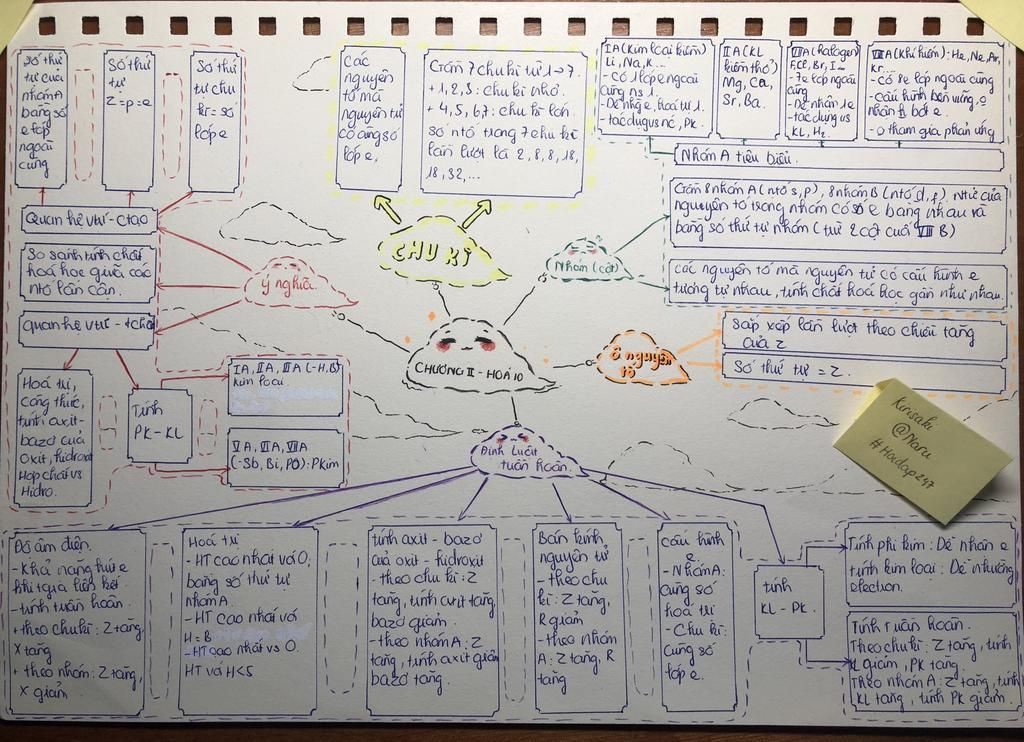 Số thứ
tự của
nhóm A
bằng số
e lớp
ngoài
cùng
Số thứ
tự
Z = p = e
Số thứ
tự chu
kì = số
lớp e
Quan hệ vtrí - ctạo
So sánh tính chất
hoá học giữa các
ntố lân cận.
quan hệ vtrí - tchất
Hoá trị,
công thức,
tính axit-
bazơ của
Oxit, hidroxit
Hợp chất vs
Hidro.
Tính
PK - KL
IA, IIA, IIIA (-H,B)
kim loại
VA, VIA, VIIA
(-Sb, Bi, Po): Pkim
Ý nghĩa
Các
nguyên
tố mà
nguyên tử
có cùng số
lớp e,
Gồm 7 chu kì từ 1 → 7.
+ 1, 2, 3: chu kì nhỏ.
+ 4, 5, 6, 7: chu kì lớn
số ntố trong 7 chu kì
lần lượt là 2, 8, 8, 18,
18, 32,...
CHU KÌ
IA (Kim loại kiềm)
Li, Na, K...
- Có 1 lớp e ngoài
cùng ns 1.
- Dễ nhg e, hoá trị 1.
- tác dụng vs nc, PK.
IIA (KL
kiềm thổ)
Mg, Ca,
Sr, Ba.
VIIA (halogen)
F, Cl, Br, I...
- 7e lớp ngoài
cùng
- Dễ nhận 1e
- tác dụng vs
KL, H2.
VIIIA (Khí hiếm): He, Ne, Ar,
Kr...
- có 8e lớp ngoài cùng
- Cấu hình bền vững, o
nhận n bớt e.
- o tham gia phản ứng
Nhóm A tiêu biểu.
Gồm 8 nhóm A (ntố s, p), 8 nhóm B (ntố d, f). Ntử của
nguyên tố trong nhóm có số e bằng nhau và
bằng số thứ tự nhóm (trừ 2 cột cuối VIII B)
các nguyên tố mà nguyên tử có cấu hình e
tương tự nhau, tính chất hoá học gần như nhau.
Nhóm (cột)
CHƯƠNG II - HOÁ 10
Ô nguyên
tố
Sắp xếp lần lượt theo chiều tăng
của Z
Số thứ tự = Z.
Kirisaki
@Naru
#Hoidap247
Định Luật
tuần hoàn.
Độ âm điện.
- Khả năng hút e
khi tạo liên kết.
- tính tuần hoàn.
+ theo chu kì: Z tăng,
X tăng
+ theo nhóm: Z tăng,
X giảm
Hoá trị
- HT cao nhất với O,
bằng số thứ tự
nhóm A.
- HT cao nhất vớ
H = 8
- HT cao nhất vs O.
HT với H<5
tính axit - bazơ
của oxit - hidroxit
- theo chu kì: Z
tăng, tính axit tăng
bazơ giảm.
- theo nhóm A: Z
tăng, tính axit giảm
bazơ tăng.
Bán kính,
nguyên tử
- theo chu
kì: Z tăng,
R giảm
- theo nhóm
A: Z tăng, R
tăng
Cấu hình
e
- Nhóm A:
cùng số
hoá trị
- Chu kì:
Cùng số
lớp e.
tính
KL - PK.
Tính phi kim: Dễ nhận e
tính kim loại: Dễ nhường
electron.
Tính tuần hoàn.
Theo chu kì: Z tăng, tính
KL giảm, PK tăng.
Theo nhóm A: Z tăng, tính
KL tăng, tính PK giảm.